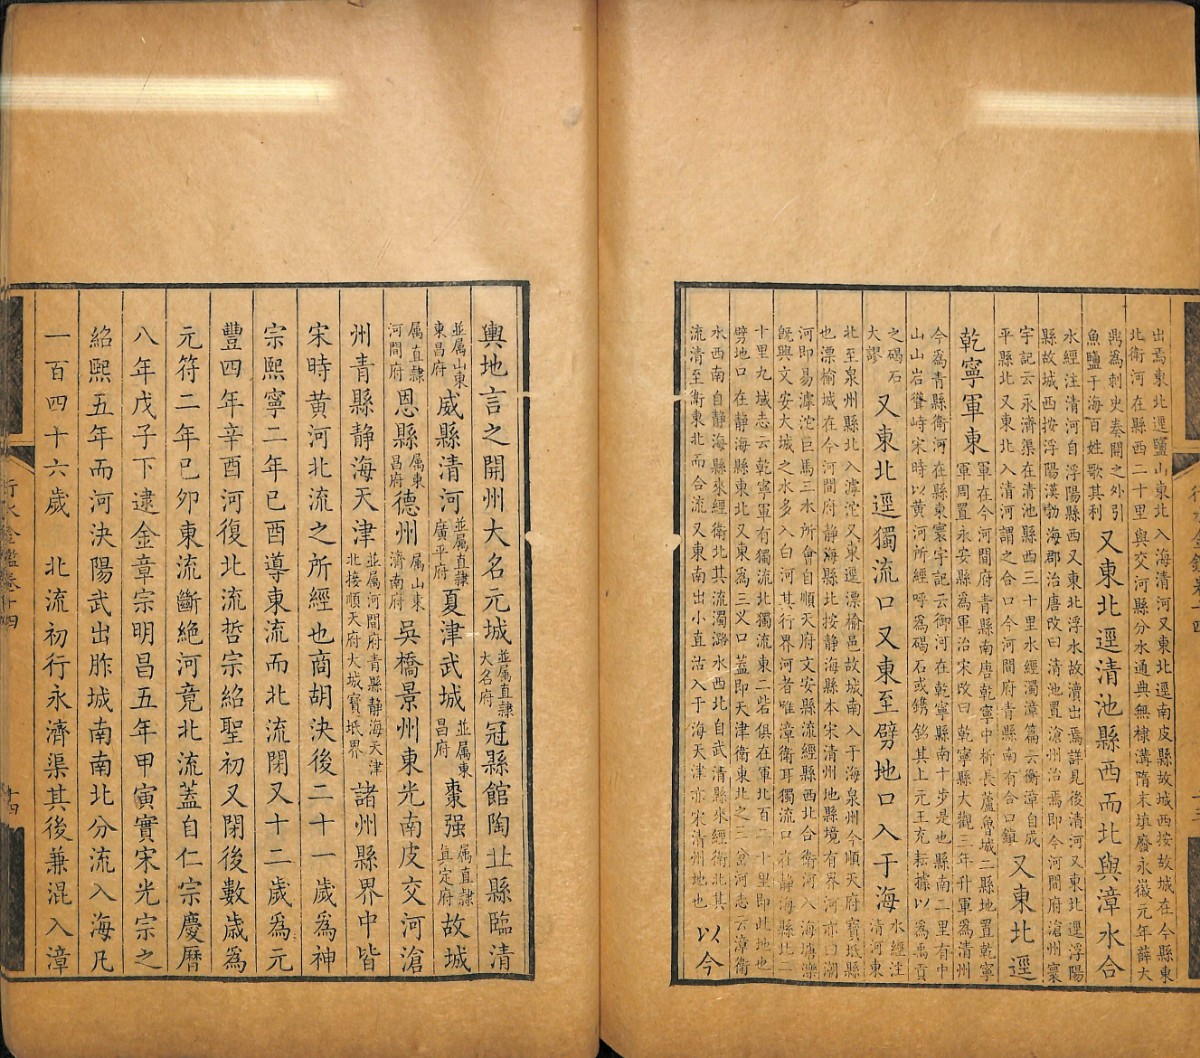 出焉東北逕鹽山東北入海清河又東北逕南皮縣故城西按故城在今縣東
北衛河在縣西二十里與交河縣分水通典無棣溝隋末填廢永徽元年薛大
鼎為刺史奏開之外引
魚鹽于海百姓歌其利
又東北逕清池縣西而北與漳水合
水經注清河自浮陽縣西又東北浮水故瀆出焉詳見後清河又東北逕浮陽
縣故城西按浮陽漢渤海郡治唐改曰清池置滄州治焉即今河間府滄州寰
宇記云永濟渠在清池縣西三十里水經濁漳篇云衡漳自成
平縣北又東北入清河謂之合口今河間府青縣南有合口鎮
又東北逕
乾寧軍東
軍在今河間府青縣南唐乾寧中析長蘆魯城二縣地置乾寧
軍周置永安縣為軍治宋改曰乾寧縣大觀三年升軍為清州
今為青縣衛河在縣東寰宇記云御河在乾寧縣南十步是也縣南二里有中
山山岩聳峙宋時以黃河所經呼為碣石或鐫銘其上元王充耘據以為禹貢
之碣石
大謬
又東北逕獨流口又東至劈地口入于海
水經注
清河東
北至泉州縣北入滹沱又東逕漂榆邑故城南入于海泉州今順天府寶坻縣
也漂榆城在今河間府靜海縣北按靜海縣本宋清州地縣境有界河亦曰潮
河即易滹沱巨馬三水所會自順天府文安縣流經縣西北合衛河入海塘濼
既與文安大城之水多入白河其行界河者唯漳衛耳獨流口在靜海縣北二
十里九域志云乾寧軍有獨流北獨流東二砦俱在軍北百二十里即此地也
劈地口在靜海縣東北又東為三㕚口蓋即天津衛東北之三岔河志云漳衛
水西南自靜海縣來經衛北其流濁潞水西北自武清縣來經衛北其
流清至衛東北而合流又東南出小直沽入于海天津亦宋清州地也
以今
輿地言之開州大名元城
並属直隷
大名府
冠縣館陶丘縣臨清
並属山東
東昌府
威縣清河
並属直隷
廣平府
夏津武城
並属東
昌府
棗强
属直隷
真定府
故城
属直隷
河間府
恩縣
属東
昌府
德州
属山東
濟南府
吳橋景州東光南皮交河滄
州青縣靜海天津
並属河間府青縣靜海天津
北接順天府大城寶坻界
諸州縣界中皆
宋時黄河北流之所經也商胡決後二十一歲為神
宗熙寧二年己酉導東流而北流閉又十二歲為元
豐四年辛酉河復北流哲宗紹聖初又閉後數歲為
元符二年己卯東流斷絶河竟北流蓋自仁宗慶曆
八年戊子下逮金章宗明昌五年甲寅實宋光宗之
紹熙五年而河決陽武出胙城南南北分流入海凡
一百四十六歲　北流初行永濟渠其後兼混入漳
行水金鑑卷十四
十四